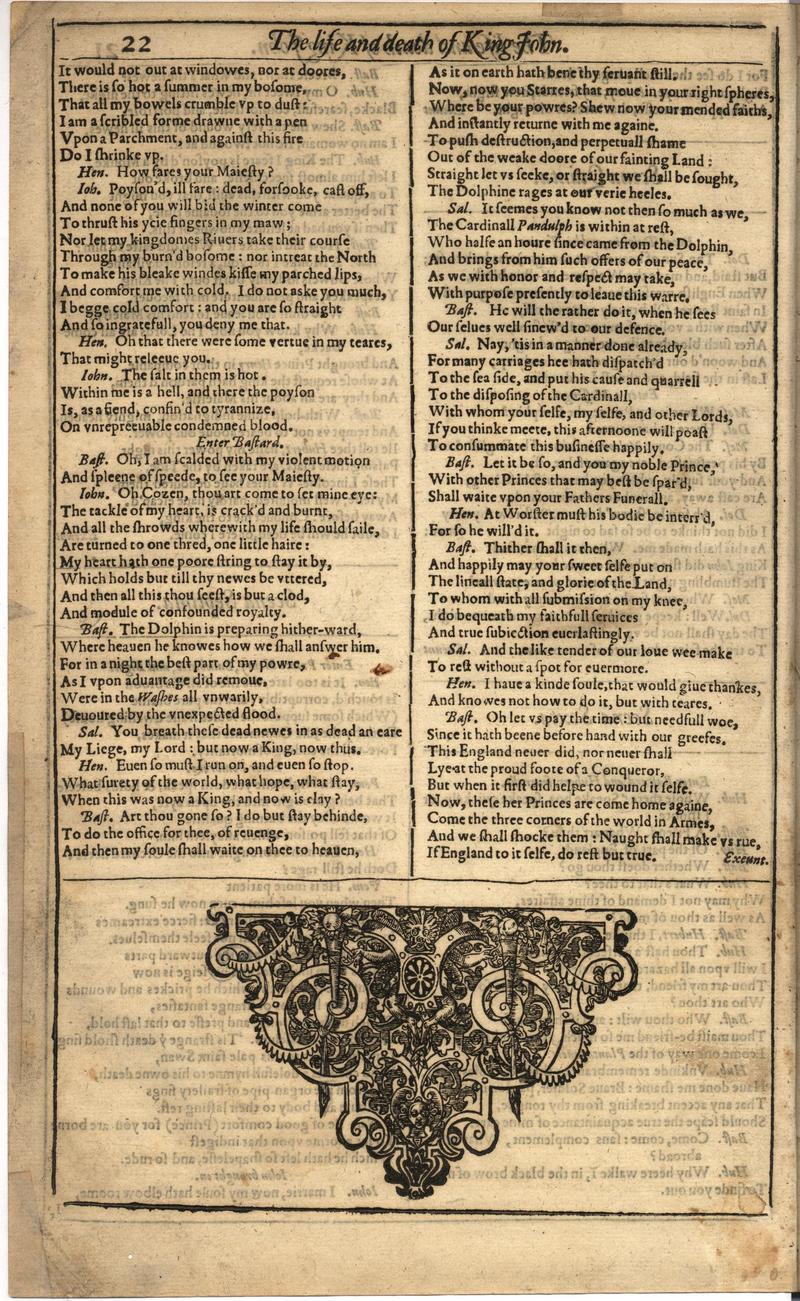 22
The life and death of King John.
It would not out at windowes, nor at doores,
There is so hot a summer in my bosome,
That all my bowels crumble vp to dust:
I am a scribled forme drawne with a pen
Vpon a Parchment, and against this fire
Do I shrinke vp.
Hen. How fares your Maiesty?
Ioh. Poyson'd, ill fare: dead, forsooke, cast off,
And none of you will bid the winter come
To thrust his ycie fingers in my maw;
Nor let my kingdomes Riuers take their course
Through my burn'd bosome: nor intreat the North
To make his bleake windes kisse my parched lips,
And comfort me with cold. I do not aske you much,
I begge cold comfort: and you are so straight
And so ingratefull, you deny me that.
Hen. Oh that there were some vertue in my teares,
That might releeue you.
Iohn. The salt in them is hot.
Within me is a hell, and there the poyson
Is, as a fiend, confin'd to tyrannize,
On vnrepreeuable condemned blood.
Enter Bastard.
Bast. Oh, I am scalded with my violent motion
And spleene of speede, to see your Maiesty.
Iohn. Oh Cozen, thou art come to set mine eye:
The tackle of my heart, is crack'd and burnt,
And all the shrowds wherewith my life should saile,
Are turned to one thred, one little haire:
My heart hath one poore string to stay it by,
Which holds but till thy newes be vttered,
And then all this thou seest, is but a clod,
And module of confounded royalty.
Bast. The Dolphin is preparing hither-ward,
Where heauen he knowes how we shall answer him.
For in a night the best part of my powre,
As I vpon aduantage did remoue,
Were in the Washes all vnwarily,
Deuoured by the vnexpected flood.
Sal. You breath these dead newes in as dead an eare
My Liege, my Lord: but now a King, now thus.
Hen. Euen so must I run on, and euen so stop.
What surety of the world, what hope, what stay,
When this was now a King, and now is clay?
Bast. Art thou gone so? I do but stay behinde,
To do the office for thee, of reuenge,
And then my soule shall waite on thee to heauen,
As it on earth hath bene thy seruant still.
Now, now you Starres, that moue in your right spheres,
Where be your powres? Shew now your mended faiths,
And instantly returne with me againe.
To push destruction, and perpetuall shame
Out of the weake doore of our fainting Land:
Straight let vs seeke, or straight we shall be sought,
The Dolphine rages at our verie heeles.
Sal. It seemes you know not then so much as we,
The Cardinall Pandulph is within at rest,
Who halfe an houre since came from the Dolphin,
And brings from him such offers of our peace,
As we with honor and respect may take,
With purpose presently to leaue this warre.
Bast. He will the rather do it, when he sees
Our selues well sinew'd to our defence.
Sal. Nay, 'tis in a manner done already,
For many carriages hee hath dispatch'd
To the sea side, and put his cause and quarrell
To the disposing of the Cardinall,
With whom your selfe, my selfe, and other Lords,
If you thinke meete, this afternoone will poast
To consummate this businesse happily.
Bast. Let it be so, and you my noble Prince,
With other Princes that may best be spar'd,
Shall waite vpon your Fathers Funerall.
Hen. At Worster must his bodie be interr'd,
For so he will'd it.
Bast. Thither shall it then,
And happily may your sweet selfe put on
The lineall state, and glorie of the Land,
To whom with all submission on my knee,
I do bequeath my faithfull seruices
And true subiection euerlastingly.
Sal. And the like tender of our loue wee make
To rest without a spot for euermore.
Hen. I haue a kinde soule, that would giue thankes,
And knowes not how to do it, but with teares.
Bast. Oh let vs pay the time: but needfull woe,
Since it hath beene before hand with our greefes.
This England neuer did, nor neuer shall
Lye at the proud foote of a Conqueror,
But when it first did helpe to wound it selfe.
Now, these her Princes are come home againe,
Come the three corners of the world in Armes,
And we shall shocke them: Naught shall make vs rue,
If England to it selfe, do rest but true.
Exeunt.